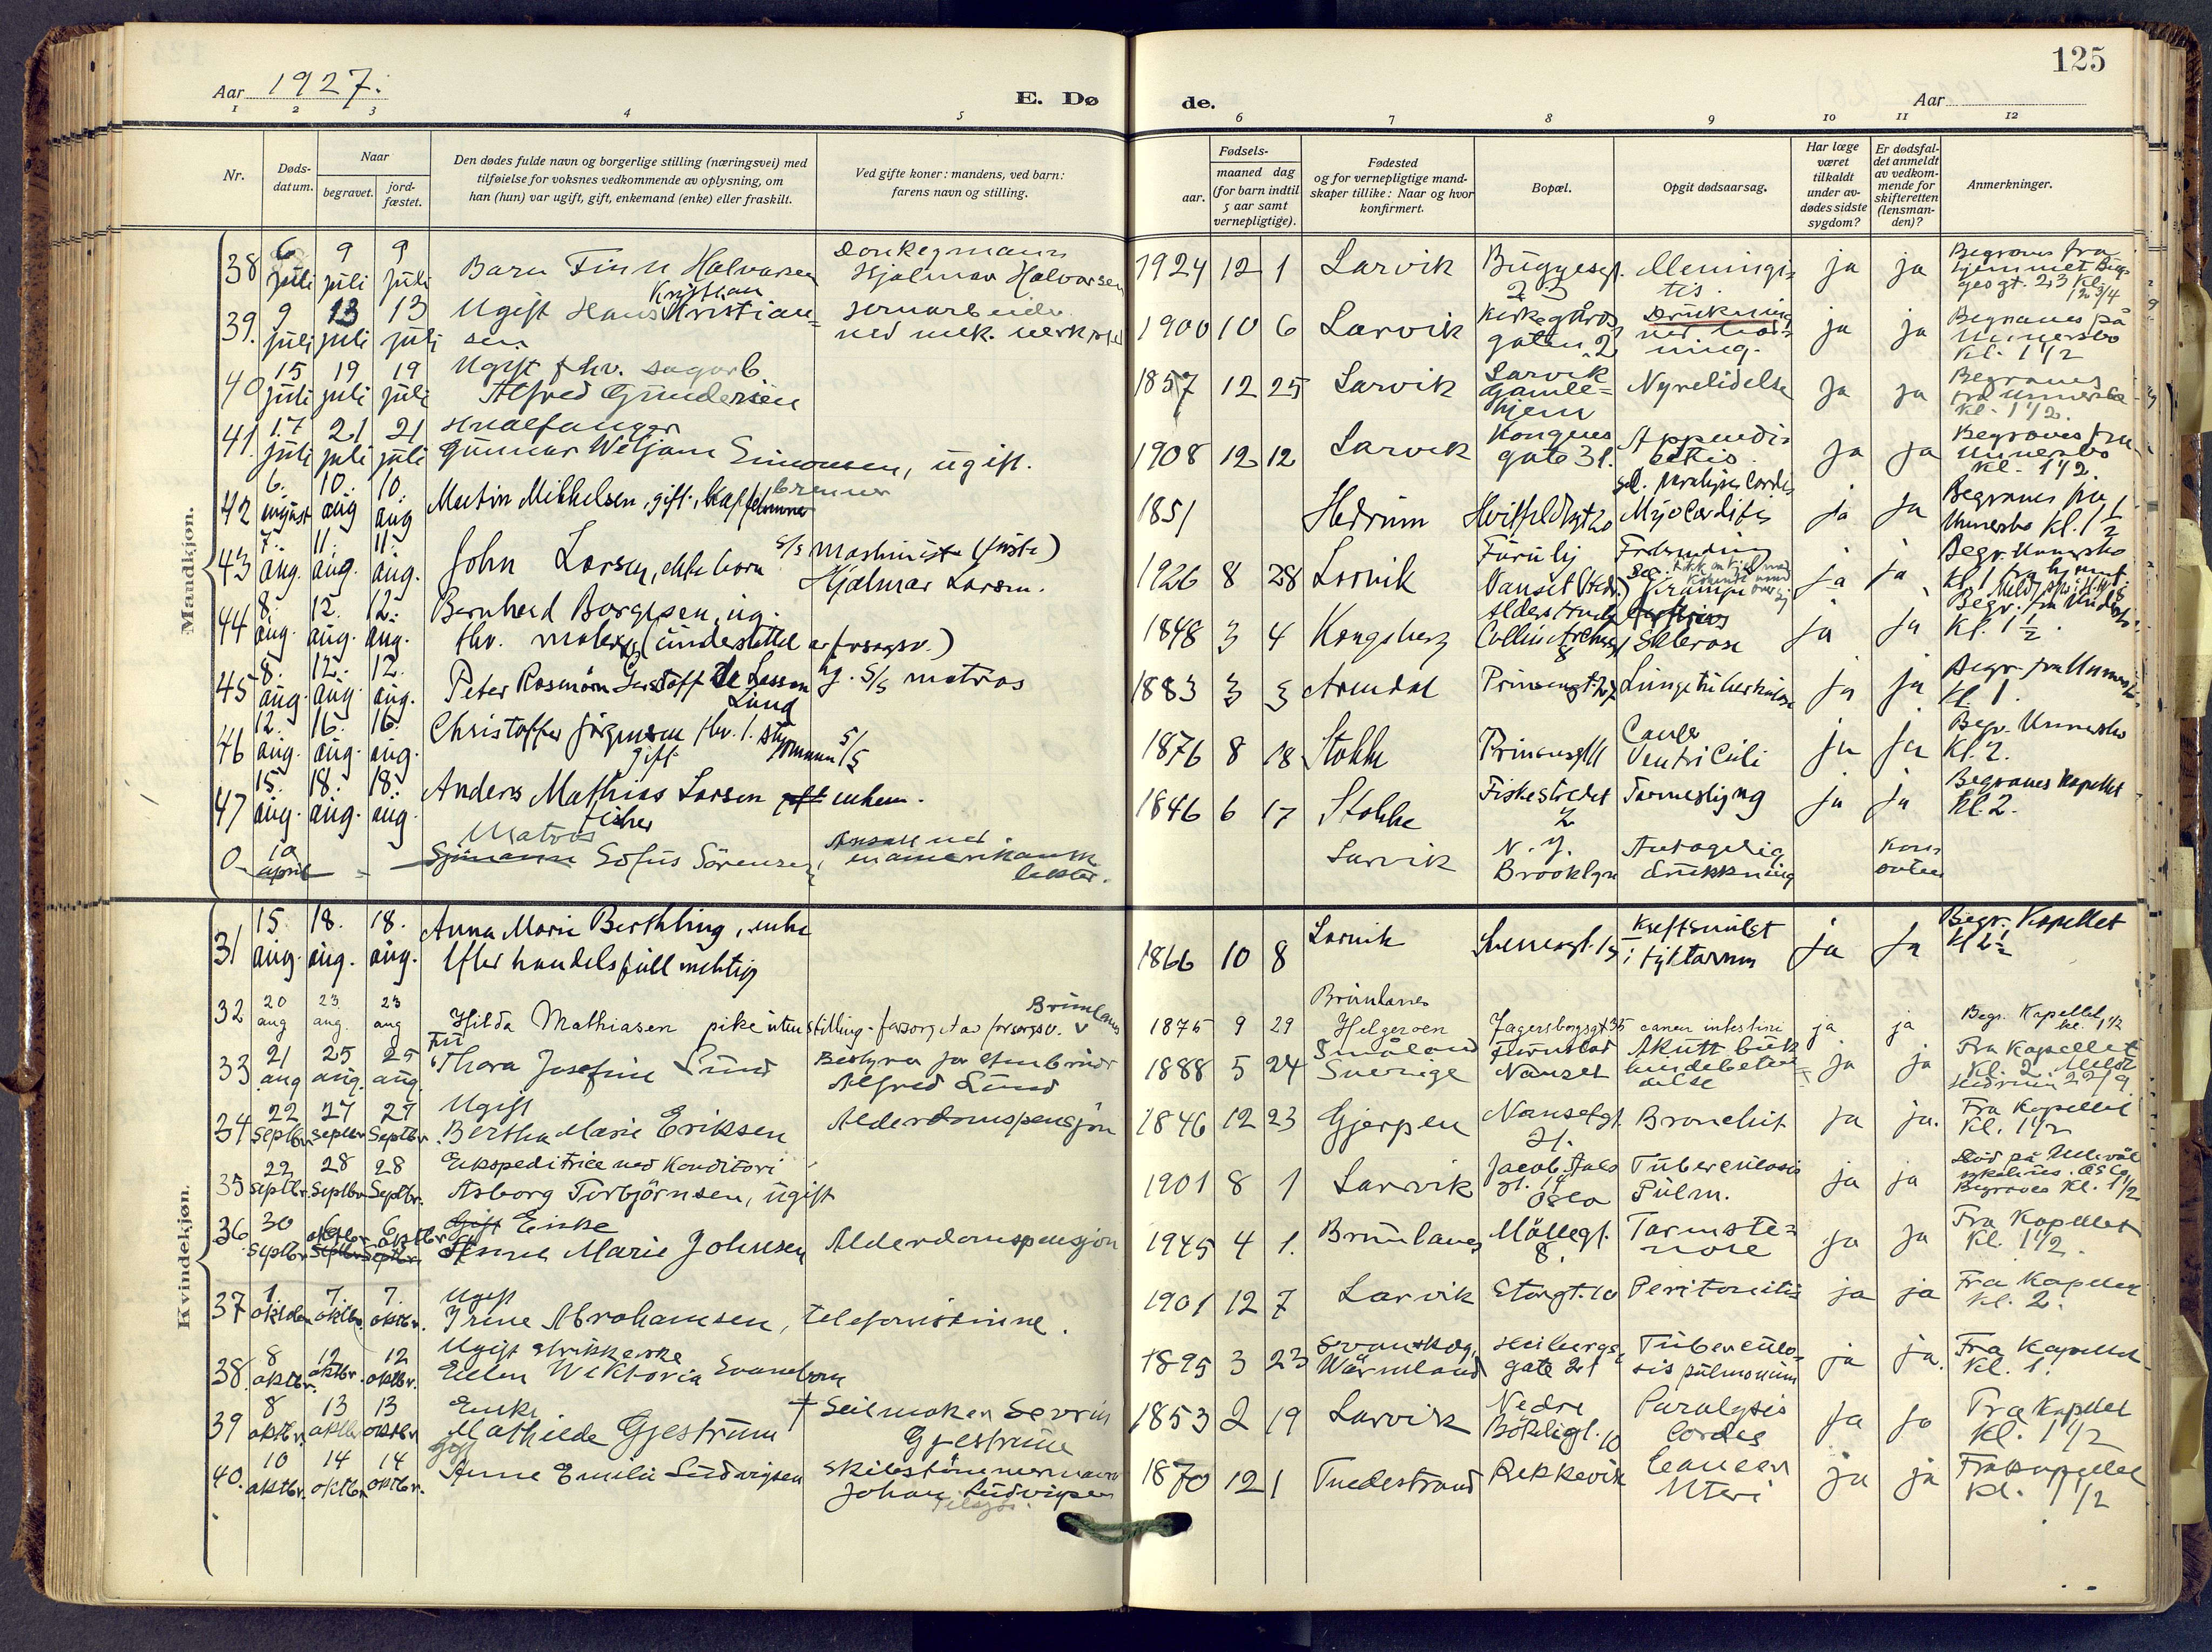 125
Aar 1927.
E. Dø de.
Aar
1 2 3 4 5 6 7 8 9 10 11 12
Nr.
Døds-
datum.
Naar
begravet.
jord-
fæstet.
Den dødes fulde navn og borgerlige stilling (næringsvei) med
tilføielse for voksnes vedkommende av oplysning, om
han (hun) var ugift, gift, enkemand (enke) eller fraskilt.
Ved gifte koner: mandens, ved barn:
farens navn og stilling.
Fødsels-
aar.
maaned dag
(for barn indtil
5 aar samt
vernepligtige).
Fødested
og for vernepligtige mand-
skaper tillike: Naar og hvor
konfirmert.
Bopæl.
Opgit dødsaarsag.
Har læge
været
tilkaldt
under av-
dødes sidste
sygdom?
Er dødsfal-
det anmeldt
av vedkom-
mende for
skifteretten
(lensman-
den)?
Anmerkninger.
Mandkjøn.
38 6 juli 9 juli 9 juli Barn Finn Halvorsen Donkeymann Hjalmar Halvorsen 1924 12 1 Larvik Büggesgt. 23 Meningitis ja ja Begraves fra hjemmet
39. 9 juli 13 juli 13 juli Ugift Hans Kristian Kristiansen Jernarbeider ved mek. verksted 1900 10 6 Larvik Kirkegårdsgaten 2 Drukning ja ja Begraves på Unnersbo Kl. 1 1/2
40 15 juli 19 juli 19 juli Ugift fhv. sagarb. Alfred Gundersen 1857 12 25 Larvik Larvik Gamlehjem Nyrelidelse ja ja Begraves fra Unnersbo kl. 1 1/2.
41. 17 juli 21 juli 21 juli Hvalfanger Gunnar Wiljam Simonsen, ugift. 1908 12 12 Larvik Kongens gate 31. Appendicitis ja ja Begraves fra Unnersbo kl. 1 1/2
42 6. august 10. aug 10. aug Martin Mikkelsen, gift, brenner 1851 Hedrum Hvitfeldtsgt 20 Myocarditis paralysis cordis ja ja Begraves fra Unnersbo Kl. 1 1/2
43 7. aug. 11. aug. 11. aug. John Larsen, ekte barn S/S Maskinist (første) Hjalmar Larsen. 1926 8 28 Larvik Furuly Nanset Krampe ja ja Begr. Unnersbo kl. 1
44 8. aug. 12. aug. 12. aug. Bernhard Borgesen, ug. fhv. maler (understøttet av forsorgsv.) 1848 3 4 Kongsberg Collin Archersgt 8 Sklerose ja ja Begr. fra Unnersbo Kl. 1 1/2.
45 8. aug. 12. aug. 12. aug. Peter Rosenörn Gersdoff De Lasson Lund ug. S/S matros 1883 3 3 Arendal Prinsensgt. 27 Lungetuberkulose ja ja Begr. fra Unnersbo kl. 1.
46 12. aug. 16. aug. 16. aug. Christoffer Jörgensen fhv. 1. styrmann S/S gift 1876 8 18 Stokke Prinsensgt 11 Cancer Ventriculi ja ja Begr. Unnersbo Kl. 2.
47 15. aug. 18. aug. 18. aug. Anders Mathias Larsen gift enkem. fisker 1846 6 17 Stokke Fiskestredet 2 Tarmeslyng ja ja Begraves Kapellet Kl. 2.
0 10 april Matros Sjömann Sofus Sörensen, Ansatt ved en amerikansk lekter. Larvik N. Y. Brooklyn Antagelig drukkning
Kvindekjøn.
31 15. aug. 18. aug. 18. aug. Anna Marie Berthling, enke efter handelsfullmektig 1866 10 8 Larvik Kreftsvulst i tyktarmen ja ja Begr. Kapellet
32 20 aug 23 aug. 23 aug Hilda Mathiasen pike uten stilling - forsorget av forsorgsv. Brunlanes 1875 9 29 Brunlanes Helgeroen Jagersborgsgt 35 cancer intestini ja ja Begr. Kapellet kl. 1 1/2
33 21 aug 25 aug. 25 aug. Fru Thora Josefine Lund Bestyrer Alfred Lund 1888 5 24 Småland Sverige Furustad Nanset Akutt ja ja Fra Kapellet Kl. 2.
34 22 Septbr. 27 septbr 27 Septbr. Ugift Bertha Marie Eriksen Alderdomspensjon 1846 12 23 Gjerpen Nansetgt. Bronchit ja ja. Fra Kapellet Kl. 1 1/2
35 22 septbr. 28 Septbr. 28 Septbr. Ekspeditrice ved Konditori Asborg Torbjörnsen, ugift 1901 8 1 Larvik Oslo Tuberculosis Pulm. ja ja Död på Ullevål sykehus. Oslo Begraves Kl. 1 1/2
36 30 septbr 6 oktbr. Septbr. 6 oktbr Septbr. Gift Enke Anne Marie Johnsen Alderdomspensjon 1945 4 1. Brunlanes Möllegt. 8. Tarmstenose ja ja Fra Kapellet Kl. 1 1/2.
37 1. oktober 7. oktbr. 7. oktbr. Ugift Irene Abrahamsen, telefonistinne. 1901 12 7 Larvik Storgt. 10 Peritonitis ja ja Fra Kapellet Kl. 2.
38. 8 oktbr. 12 oktbr. 12 oktbr. Ugift strikkerske Ellen Wiktoria Svaneborn 1895 3 23 Svanskog, Wärmland Heibergsgate 21 Tuberculosis pulmonum ja ja. Fra Kapellet Kl. 1.
39 8 oktbr. 13 oktbr 13 oktbr Enke. Mathilde Gjestrum † Seilmaker Sevrin Gjestrum 1853 2 19 Larvik Nedre Bökeligt. 10 Paralysis Cordis ja ja Fra Kapellet Kl. 1 1/2
40. 10 oktbr. 14 oktbr 14 oktbr. Gift Anne Emilie Ludvigsen Skibstömmermann Johan Ludvigsen 1870 12 1 Tvedestrand Rekkevik Cancer Uteri ja ja Fra kapellet Kl. 1 1/2